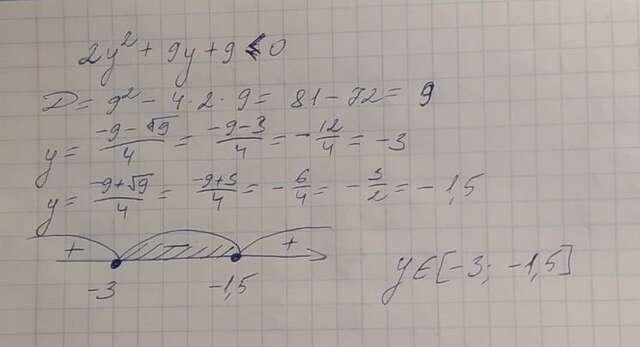 2y² + 9y + 9 < 0
D = 9² - 4·2·9 = 81 - 72 = 9
y = (-9-√9)/4 = (-9-3)/4 = -12/4 = -3
y = (-9+√9)/4 = (-9+3)/4 = -6/4 = -3/2 = -1,5
+ +
-3 -1,5
y∈[-3; -1,5]